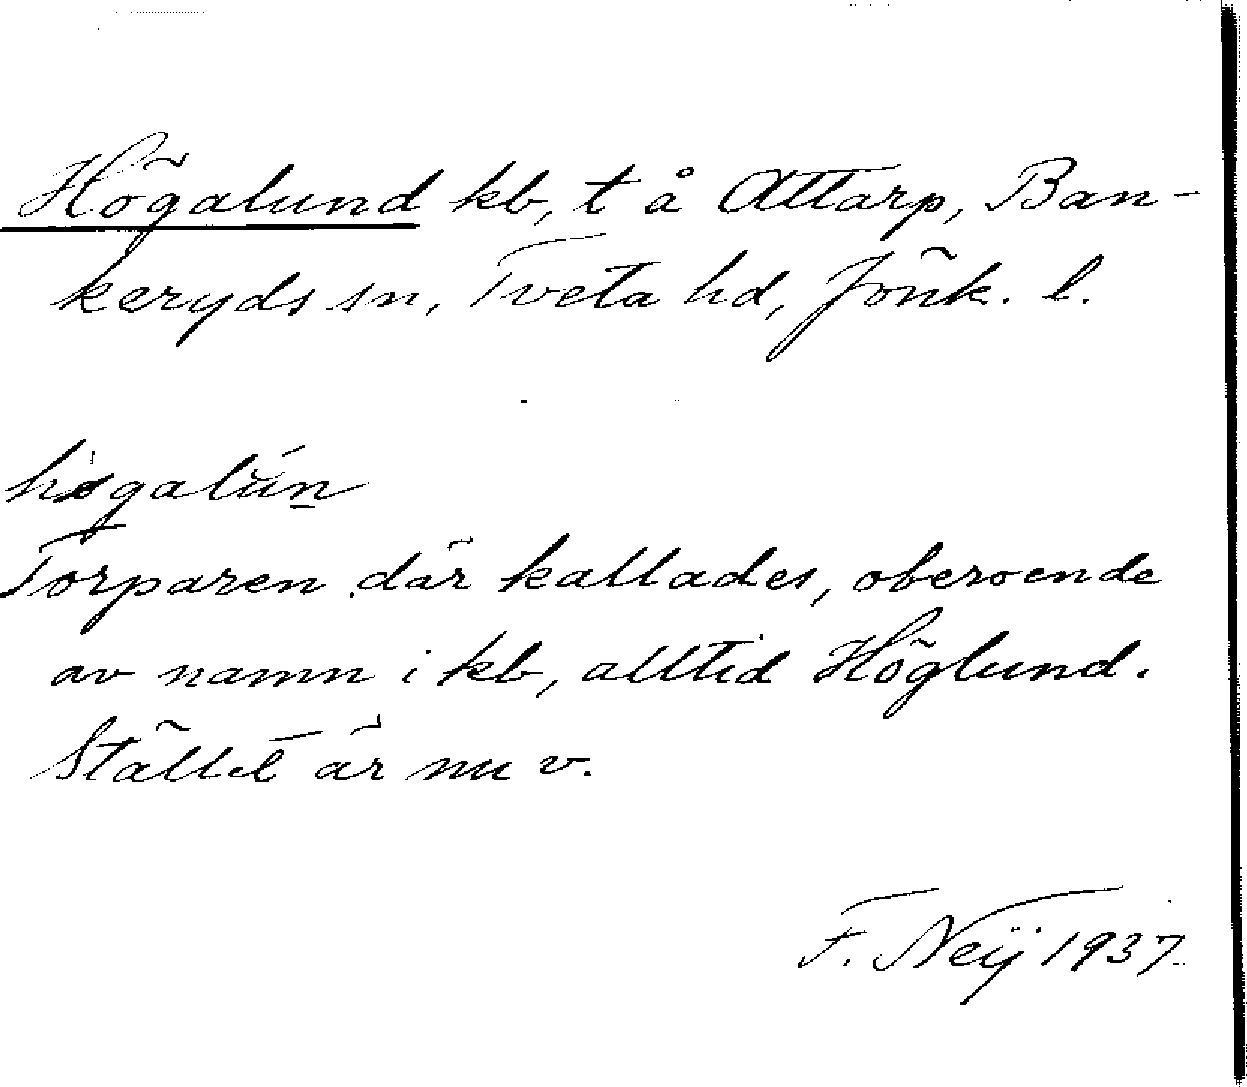 Högalund kb, t å Attarp, Ban-
keryds sn, Tveta hd, Jönk. l.
høgalún
Torparen där kallades, oberoende
av namn i kb, alltid Höglund.
Stället är nu v.
F. Neij 1937